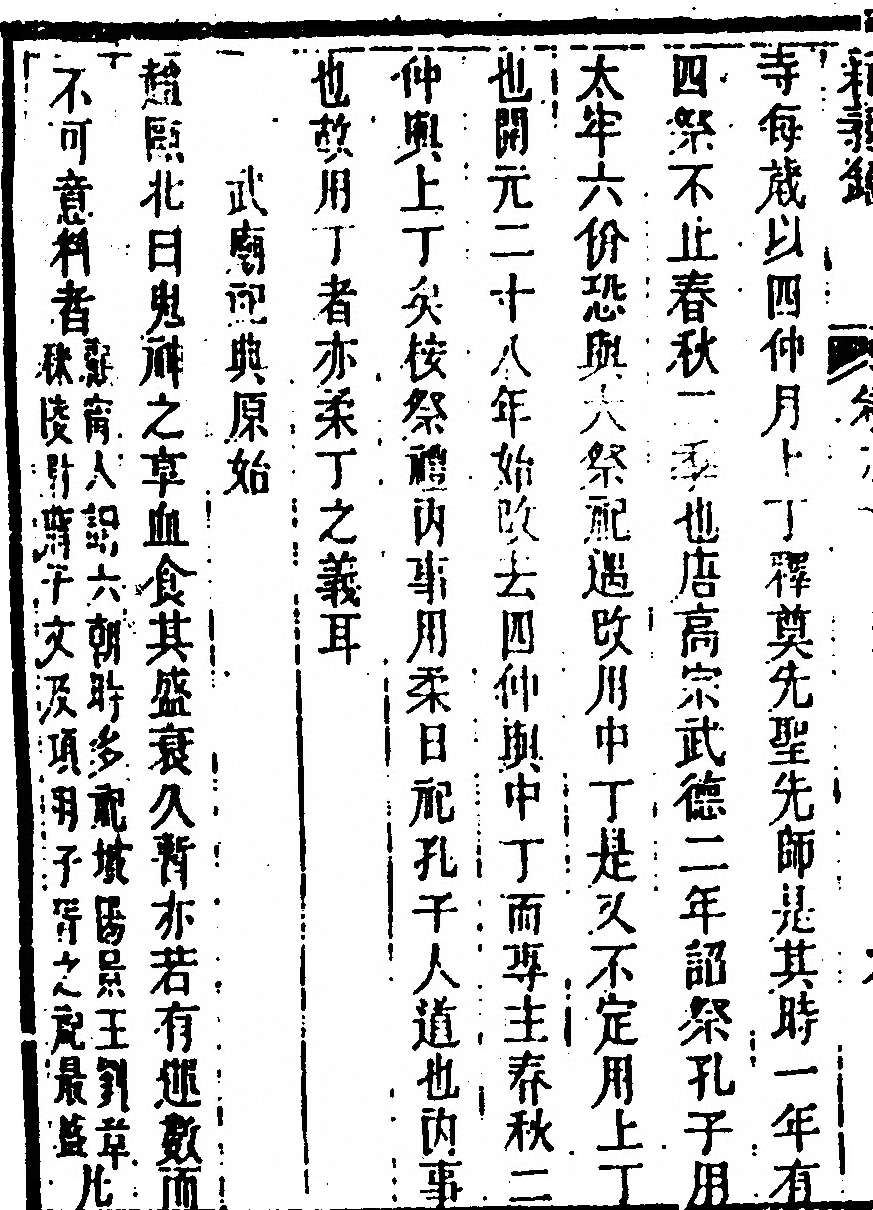 寺每歲以四仲月上丁釋奠先聖先師是其時一年有
四祭不止春秋二季也唐高宗武德二年詔祭孔子用
太牢六份恐與大祭祀遇改用中丁是又不定用上丁
也開元二十八年始改去四仲與中丁而專主春秋二
仲與上丁矣桉祭禮內事用柔日祀孔子人道也內事
也故用丁者亦柔丁之義耳
武廟祀典原始
趙甌北曰鬼神之享血食其盛衰久暫亦若有運數而
不可意料者
顧甯人謂六朝時多祀城陽景王劉章
秣陵尉蔣子文及項羽子胥之祀最盛
凡